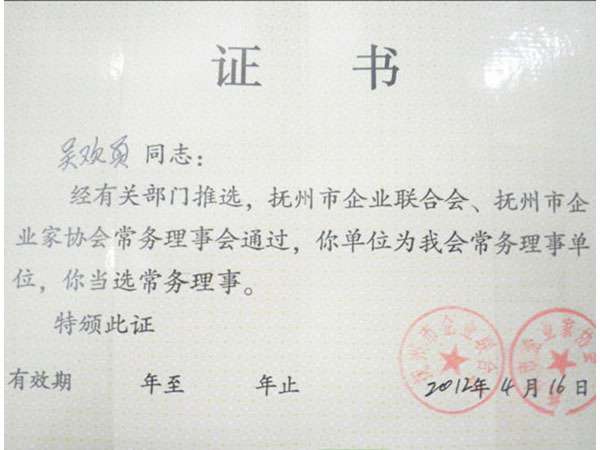 证 书
吴欢员 同志：
经有关部门推选，抚州市企业联合会、抚州市企
业家协会常务理事会通过，你单位为我会常务理事单
位，你当选常务理事。
特颁此证
有效期 年至 年止 2012年4月16日
抚州市企业联合会
市企业家协会